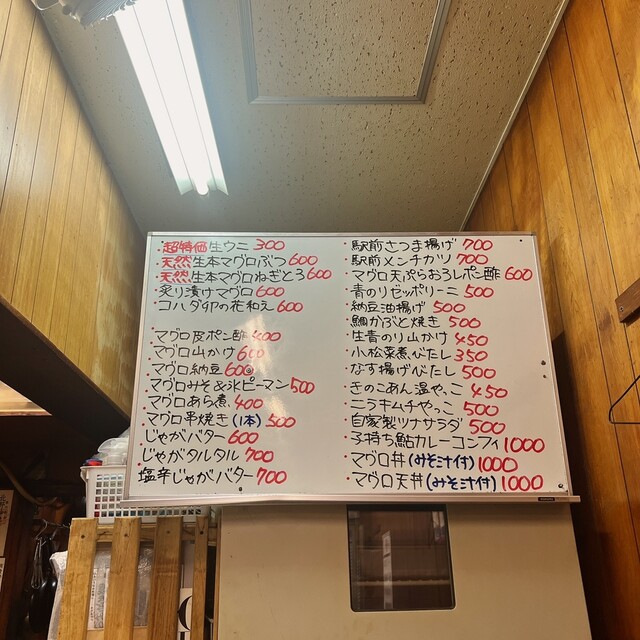 ・超特価生ウニ 300
・天然生本マグロぶつ 600
・天然生本マグロねぎとろ 600
・炙り漬けマグロ 600
・コハダ卯の花和え 600
・マグロ皮ポン酢 400
・マグロ山かけ 600
・マグロ納豆 600
・マグロみそ&氷ピーマン 500
・マグロあら煮 400
・マグロ串焼き(1本) 500
・じゃがバター 600
・じゃがタルタル 700
・塩辛じゃがバター 700
・駅前さつま揚げ 700
・駅前メンチカツ 700
・マグロ天ぷらおろしポン酢 600
・青のりゼッポリーニ 500
・納豆油揚げ 500
・鯛かぶと焼き 500
・生青のり山かけ 450
・小松菜煮びたし 350
・なす揚げびたし 500
・きのこあん温やっこ 450
・ニラキムチやっこ 500
・自家製ツナサラダ 500
・子持ち鮎カレーコンフィ 1000
・マグロ丼(みそ汁付) 1000
・マグロ天丼(みそ汁付) 1000